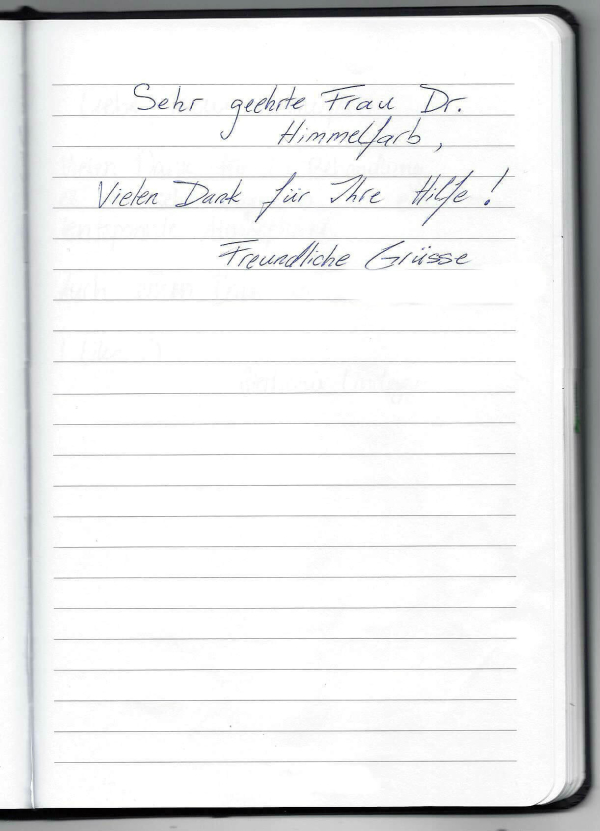 Sehr geehrte Frau Dr.
Himmelfarb,
Vielen Dank für Ihre Hilfe!
Freundliche Grüsse